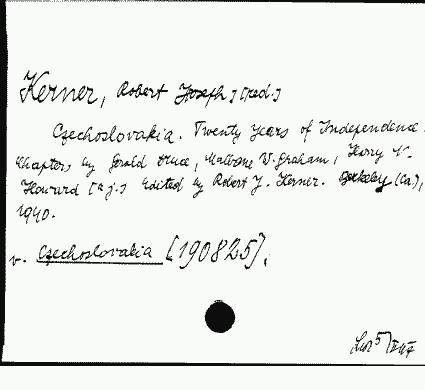 Kerner, Robert Joseph, [red.]
Czechoslovakia. Twenty Years of Independence.
Chapters by Gerald Druce, Malbone W. Graham, Harry N.
Howard [a j.] Edited by Robert J. Kerner. Berkeley (Ca),
1940.
v. Czechoslovakia [190825].